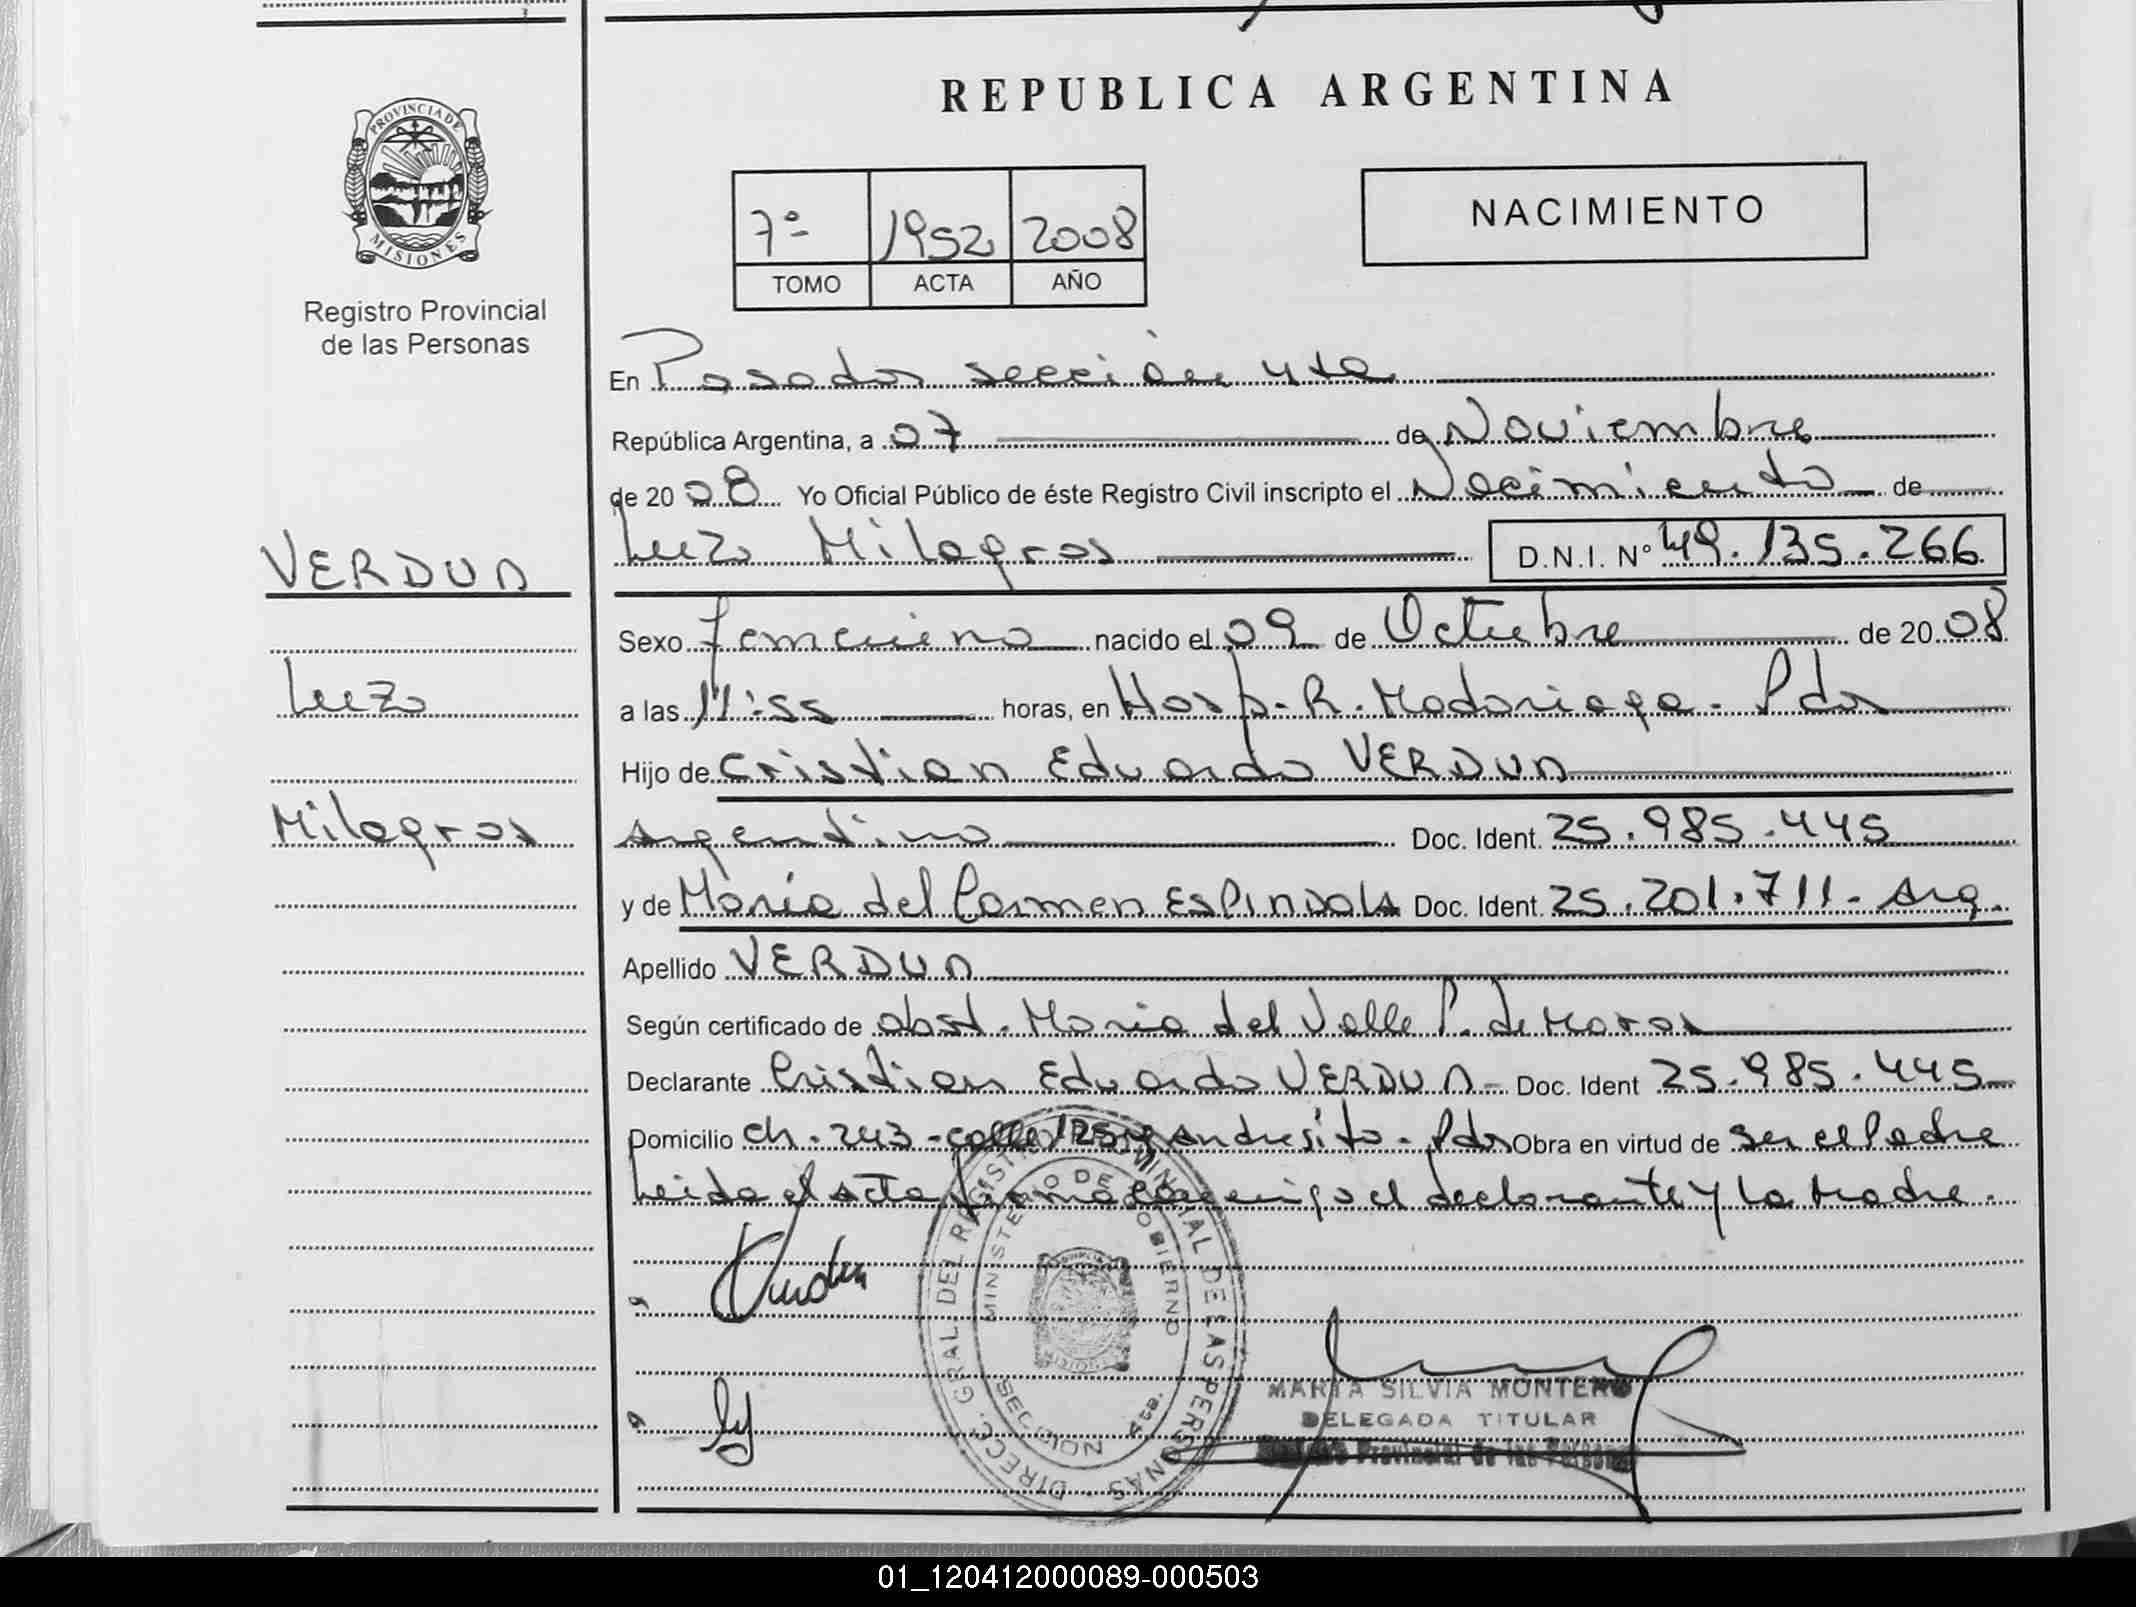 REPUBLICA ARGENTINA
PROVINCIA DE MISIONES
Registro Provincial
de las Personas
7º 1952 2008
TOMO ACTA AÑO
NACIMIENTO
En Posadas sección 4ta
República Argentina, a 07 de Noviembre
de 2008 Yo Oficial Público de éste Registro Civil inscripto el Nacimiento de
Luzo Milagros D.N.I. Nº 49.135.266
VERDUN
Luzo
Milagros
Sexo femenino nacido el 09 de Octubre de 2008
a las 11:55 horas, en Hosp. R. Madariaga - Pdas
Hijo de Cristian Eduardo VERDUN
Argentino Doc. Ident. 25.985.445
y de María del Carmen ESPINDOLA Doc. Ident. 25.201.711 - Arg.
Apellido VERDUN
Según certificado de obst. Maria del Valle P. de
Declarante Cristian Eduardo VERDUN - Doc. Ident 25.985.445
Domicilio ch. 243 - calle Andresito - Pdas Obra en virtud de ser el Padre
Leida el acta firma conmigo el declarante y la Madre.
DIRECC. GRAL DEL REGISTRO PROVINCIAL DE LAS PERSONAS
MINISTERIO DE GOBIERNO
SECCION 4ta.
MARTA SILVIA MONTERO
DELEGADA TITULAR
Registro Provincial de las Personas
01_120412000089-000503